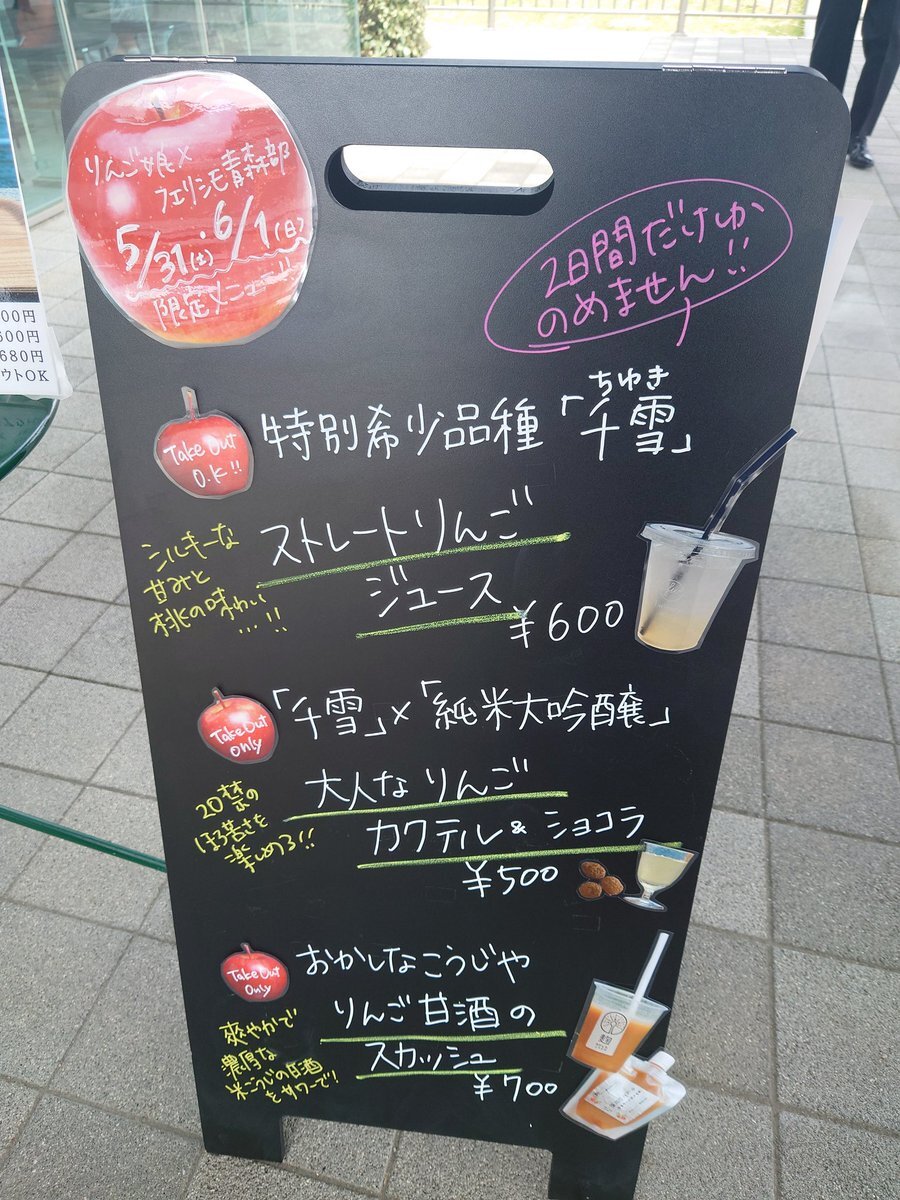 りんご娘×
フェリシモ青森部
5/31(土)・6/1(日)
限定メニュー!!
2日間だけしか
のめません!!
00円
600円
680円
ウトOK
Take Out
O.K!!
ちゆき
特別希少品種「千雪」
シルキーな
甘みと
桃の味わい
...!!
ストレートりんご
ジュース
¥600
Take Out
only
「千雪」×「純米大吟醸」
20禁の
ほろ苦さを
楽しめる!!
大人なりんご
カクテル&ショコラ
¥500
Take Out
Only
おかしなこうじや
りんご甘酒の
スカッシュ
¥700
爽やかで
濃厚な
米こうじの甘酒
をサワーで!